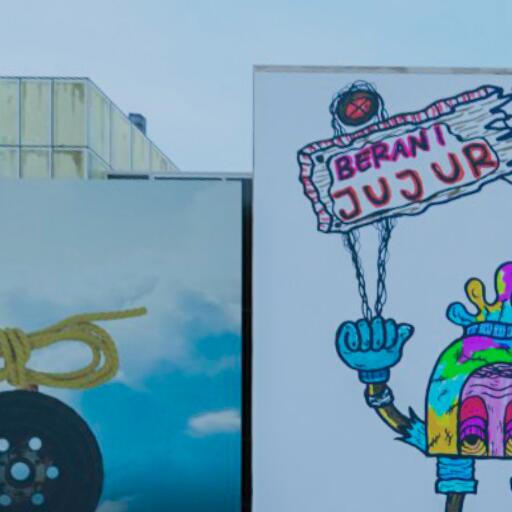 BERANI
JUJUR